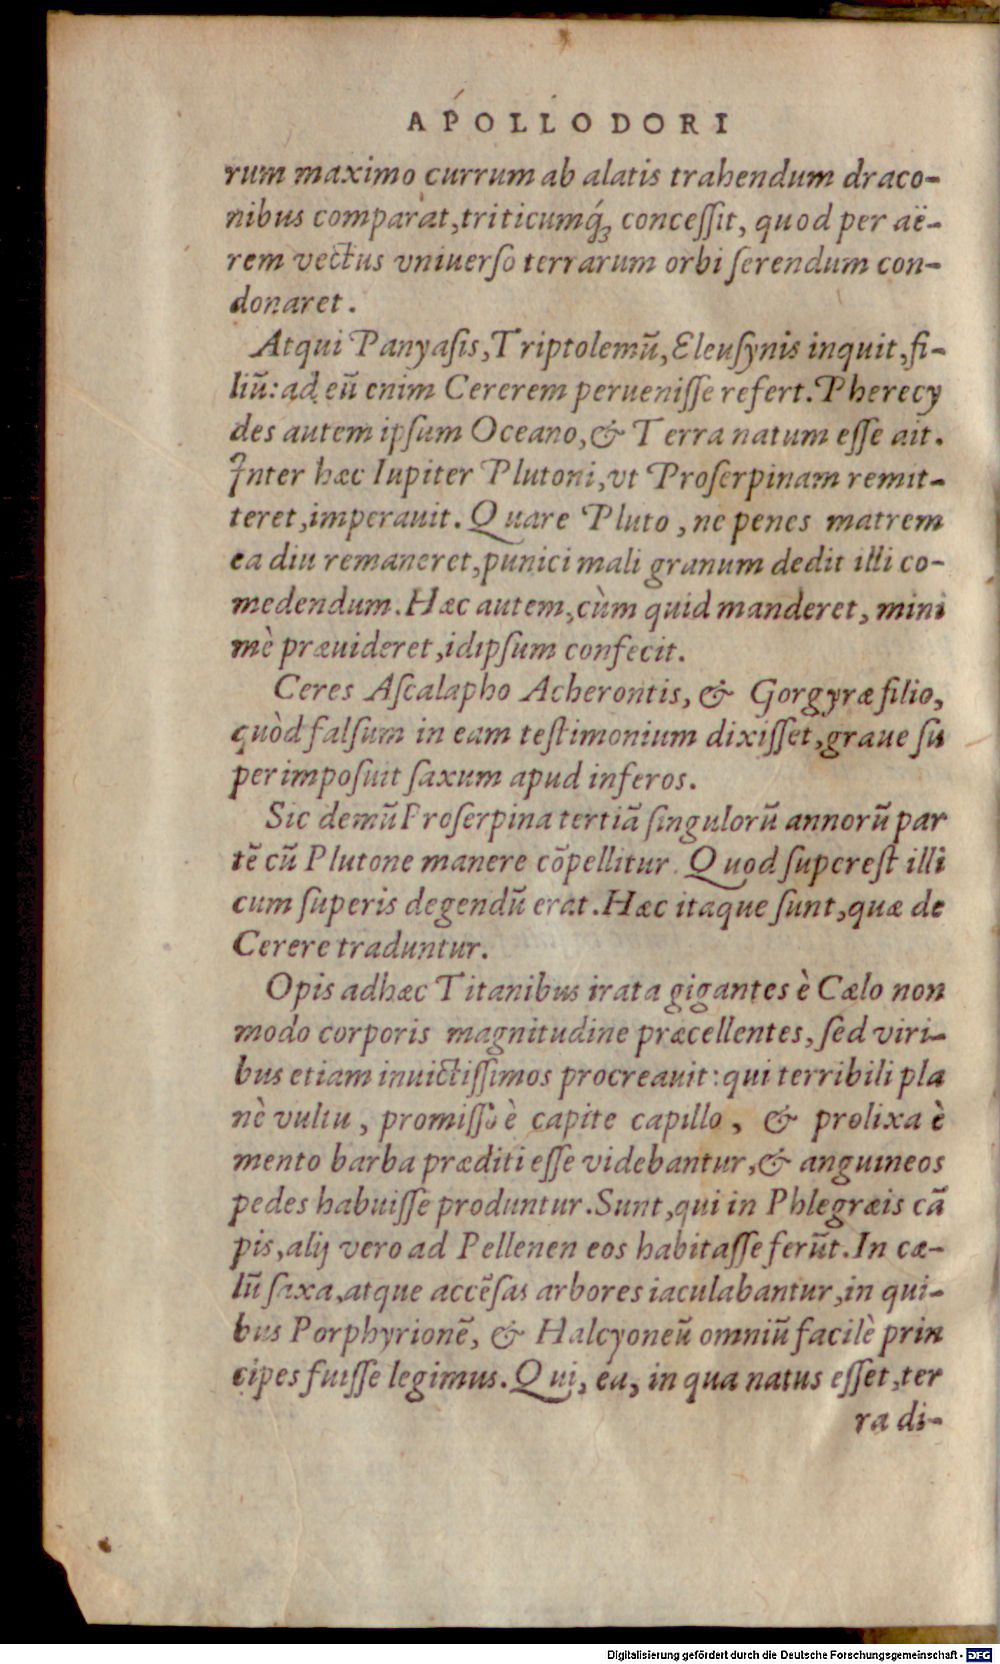 APOLLODORI
rum maximo currum ab alatis trahendum draco-
nibus comparat, triticumq́; concessit, quod per aë-
rem vectus vniuerso terrarum orbi serendum con-
donaret.
Atqui Panyasis, Triptolemũ, Eleusynis inquit, fi-
liũ: ad eũ enim Cererem peruenisse refert. Pherecy
des autem ipsum Oceano, & Terra natum esse ait.
Inter hæc Iupiter Plutoni, vt Proserpinam remit-
teret, imperauit. Quare Pluto, ne penes matrem
ea diu remaneret, punici mali granum dedit illi co-
medendum. Hæc autem, cùm quid manderet, mini
mè præuideret, idipsum confecit.
Ceres Ascalapho Acherontis, & Gorgyræ filio,
quòd falsum in eam testimonium dixisset, graue su
perimposuit saxum apud inferos.
Sic demũ Proserpina tertiã singulorũ annorũ par
tẽ cũ Plutone manere cõpellitur. Quod superest illi
cum superis degendũ erat. Hæc itaque sunt, quæ de
Cerere traduntur.
Opis adhæc Titanibus irata gigantes è Cælo non
modo corporis magnitudine præcellentes, sed viri-
bus etiam inuictissimos procreauit: qui terribili pla
nè vultu, promisso è capite capillo, & prolixa è
mento barba præditi esse videbantur, & anguineos
pedes habuisse produntur. Sunt, qui in Phlegræis cã
pis, alij vero ad Pellenen eos habitasse ferũt. In cæ-
lũ saxa, atque accẽsas arbores iaculabantur, in qui-
bus Porphyrionẽ, & Halcyoneũ omniũ facilè prin
cipes fuisse legimus. Qui, ea, in qua natus esset, ter
ra di-
Digitalisierung gefördert durch die Deutsche Forschungsgemeinschaft - DFG